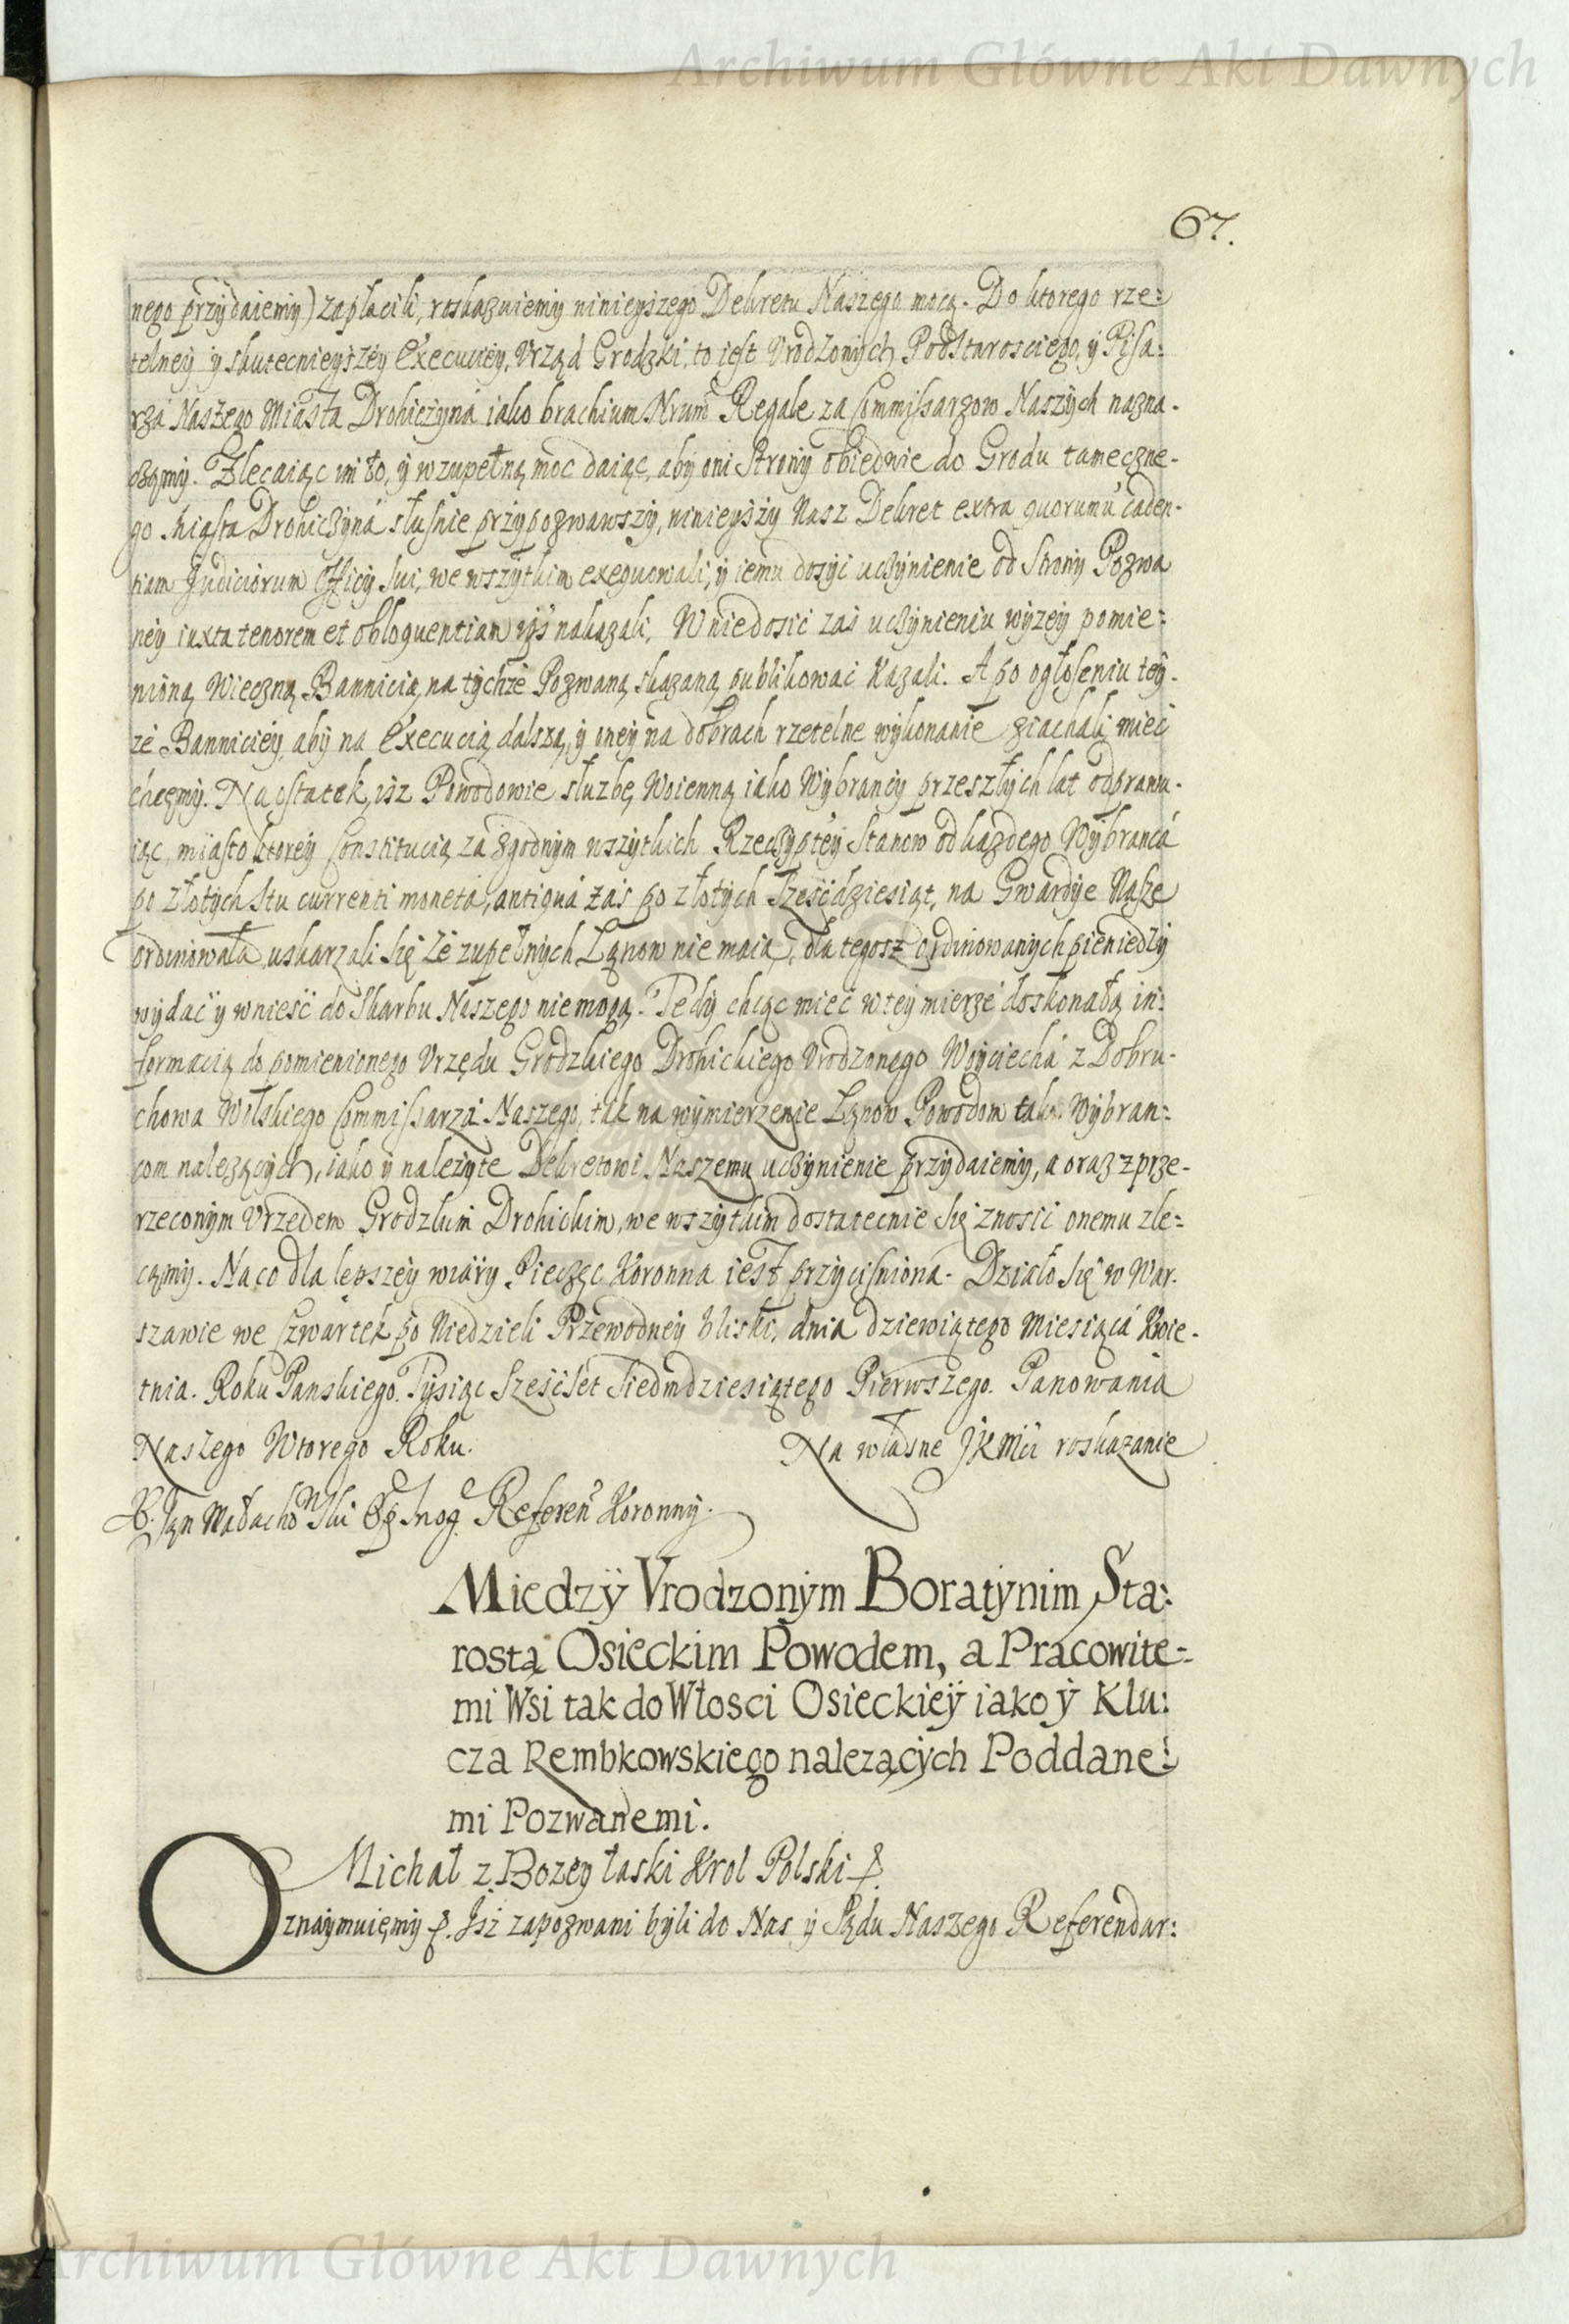 Archiwum Główne Akt Dawnych
67.
nego przÿdaiemÿ) zapłacili, roskazuiemÿ ninieÿszego Dekretu Naszego mocą. Do ktorego rze:
telneÿ ÿ skutecznieÿszeÿ Execuciÿ, Vrząd Grodzki, to iest Vrodzonÿch Podstarosciego, ÿ Pisa:
rza Naszego Miasta Drohiczÿna iako brachium Nrum Regale za Commissarzow Naszÿch nazna-
czamÿ. Zlecaiąc im to, ÿ wzupełną moc daiąc, abÿ oni Stronÿ obiedwie do Grodu tameczne-
go Miasta Drohiczÿna słusnie przÿpozwawszÿ, ninieÿszÿ Nasz Dekret extra quorumu' caden-
tiam Judiciorum Officÿ sui, we wszÿtkim exequowali, ÿ iemu dosÿć uczÿnienie od Stronÿ Pozwa
neÿ iuxta tenorem et obloquentiam eÿs nakazali, W niedosić zaś uczÿnieniu wÿzeÿ pomie:
nioną Wieczną Bannicią, na tÿchże Pozwaną skazaną publikować kazali. A po ogłoseniu teÿ-
że Banniciey, abÿ na Execucią dalszą, ÿ oneÿ na dobrach rzetelne wÿkonanie ziachali, mieć
chcemÿ. Na ostatek, isz Powodowie służbę Woienną iako Wÿbrancÿ przeszłÿch lat odprawu-
iąc, miasto ktoreÿ Constitucia za zgodnÿm wszÿtkich Rzeczÿpteÿ Stanow od każdego Wÿbranca
po złotÿch stu currenti moneta, antiqua zaś po złotÿch sześćdziesiąt, na Gwardÿe Nasze
ordinowała, uskarzali się że zupełnÿch Łanow nie maią, dla tegosz ordinowanÿch pieniedzÿ
wÿdać ÿ wnieść do Skarbu Naszego niemogą. Tedÿ chcąc mieć wteÿ mierze doskonałą in:
formacią do pomienionego Vrzędu Grodzkiego Drohickiego Vrodzonego Woÿciecha z Dobru-
chowa Wilskiego Commissarza Naszego, tak na wÿmierzenie Łanow Powodom tako Wÿbran:
com należącÿch, iako ÿ należÿte Dekretowi Naszemu uczÿnienie przÿdaiemÿ, a oraz z prze-
rzeconÿm Vrzedem Grodzkim Drohickim, we wszÿtkim dostatecnie się znosić onemu zle:
camÿ. Na co dla lepszeÿ wiarÿ Pieczęc Koronna iest przÿcisniona. Działo się w War.
szawie we Czwartek po Niedzieli Przewodneÿ bliski, dnia dziewiątego Miesiąca Kwie-
tnia. Roku Panskiego Tÿsiąc Sześćset Siedmdziesiątego Pierwszego. Panowania
Naszego Wtorego Roku. Na własne JKMci roskazanie
Jan Małachowski Referen Koronnÿ.
Międzÿ Vrodzonÿm Boratÿnim Sta:
rostą Osieckim Powodem, a Pracowite-
mi Wsi tak do Włosci Osieckieÿ iako ÿ Klu:
cza Rembkowskiego należącÿch Poddane:
mi Pozwanemi.
Michał z Bozeÿ łaski Krol Polski
Oznaÿmuiemÿ Isz zapozwani bÿli do Nas ÿ Sądu Naszego Referendar:
Archiwum Główne Akt Dawnych